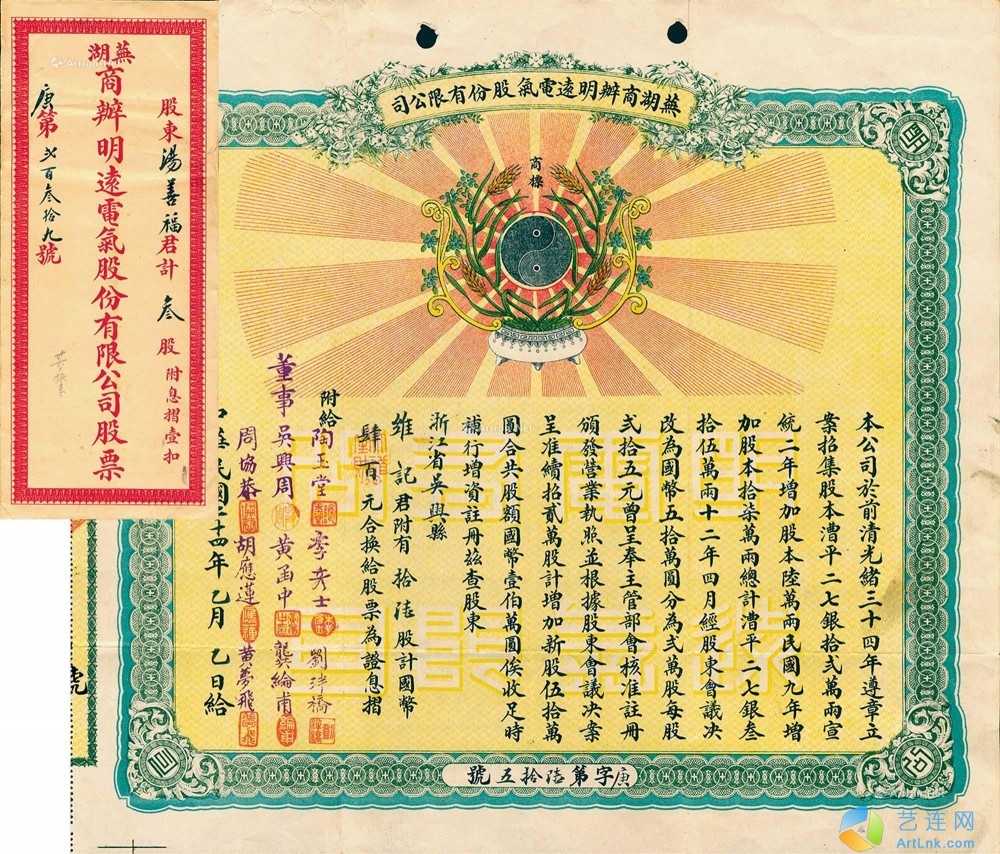 蕪湖商辦明遠電氣股份有限公司
商標
本公司於前清光緒三十四年遵章立
案招集股本漕平二七銀拾弍萬兩宣
統二年增加股本陸萬兩民國九年增
加股本拾柒萬兩總計漕平二七銀叁
拾伍萬兩十二年四月經股東會議決
改為國幣五拾萬圓分為弍萬股每股
弍拾五元曾呈奉主管部會核准註冊
頒發營業執照並根據股東會議决案
呈准續招貳萬股計增加新股伍拾萬
圓合共股額國幣壹伯萬圓俟收足時
補行增資註冊玆查股東
浙江省吳興縣
維記君附有拾陸股計國幣
肆百元合換給股票為證息摺
附給
陶玉堂
董事
吳興周
黃函中
龔綸甫
周協恭
胡應蓮
黃夢飛
民國二十四年乙月乙日給
庚字第陸拾五號
股東湯善福君計叁股附息摺壹扣
蕪湖
商辦明遠電氣股份有限公司股票
庚第弍百叁拾九號
號
艺连网
ArtLnk.com